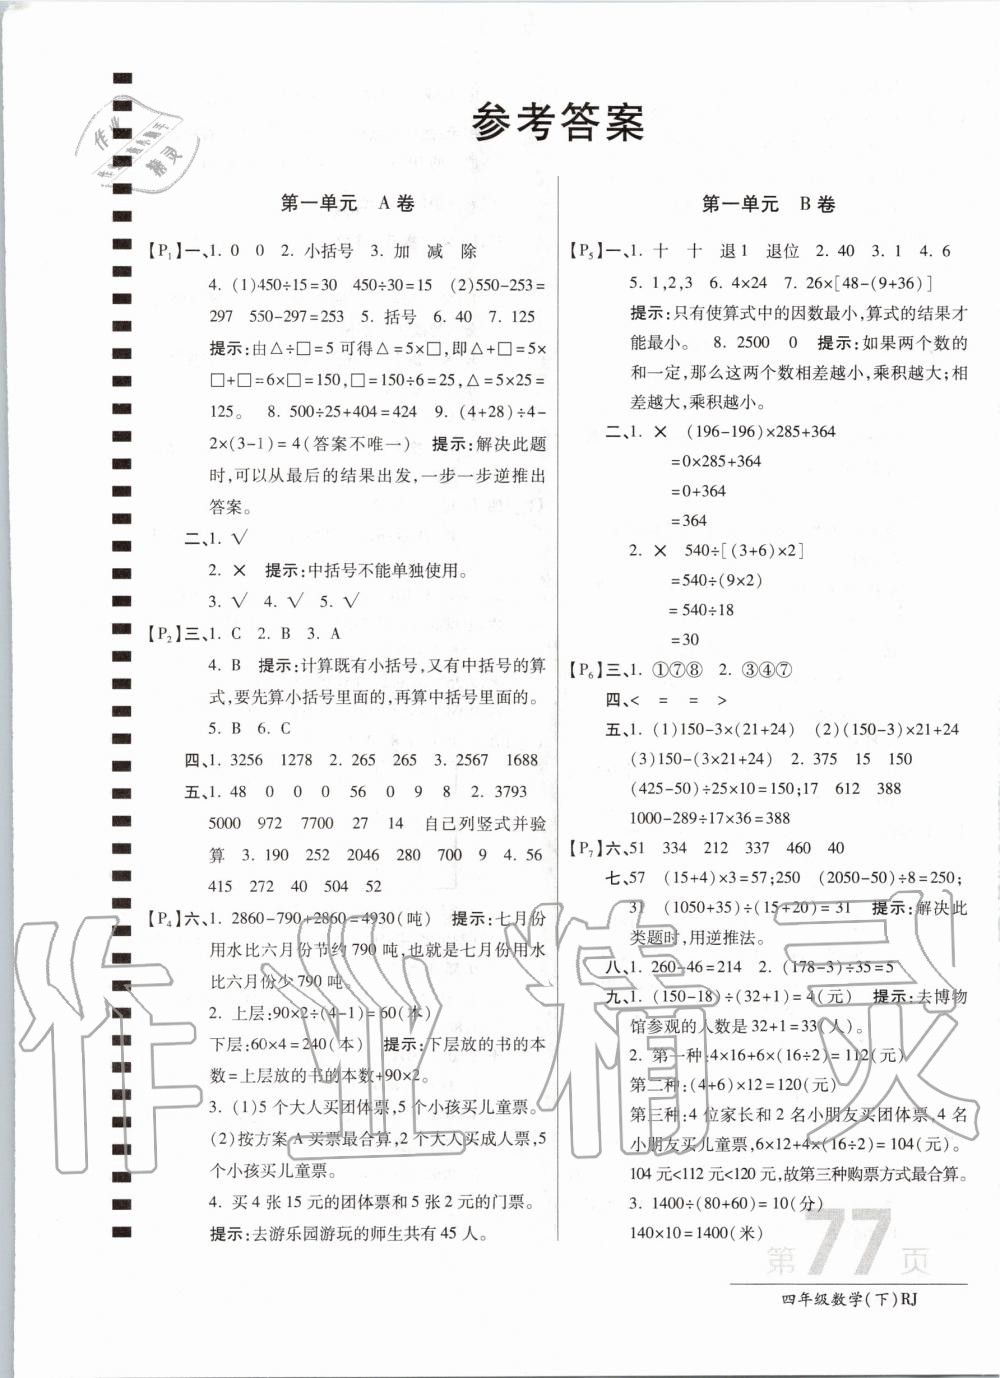 参考答案
作业
精灵
第一单元 A卷
【P₁】一、1. 0 0 2. 小括号 3. 加 减 除
4. (1)450÷15=30 450÷30=15 (2)550-253=
297 550-297=253 5. 括号 6. 40 7. 125
提示:由△÷□=5可得△=5×□,即△+□=5×
□+□=6×□=150,□=150÷6=25,△=5×25=
125。 8. 500÷25+404=424 9. (4+28)÷4-
2×(3-1)=4(答案不唯一) 提示:解决此题
时,可以从最后的结果出发,一步一步逆推出
答案。
二、1. √
2. × 提示:中括号不能单独使用。
3. √ 4. √ 5. √
【P₂】三、1. C 2. B 3. A
4. B 提示:计算既有小括号,又有中括号的算
式,要先算小括号里面的,再算中括号里面的。
5. B 6. C
四、1. 3256 1278 2. 265 265 3. 2567 1688
五、1. 48 0 0 0 56 0 9 8 2. 3793
5000 972 7700 27 14 自己列竖式并验
算 3. 190 252 2046 280 700 9 4. 56
415 272 40 504 52
【P₄】六、1. 2860-790+2860=4930(吨) 提示:七月份
用水比六月份节约790吨,也就是七月份用水
比六月份少790吨。
2. 上层:90×2÷(4-1)=60(本)
下层:60×4=240(本) 提示:下层放的书的本
数=上层放的书的本数+90×2。
3. (1)5个大人买团体票,5个小孩买儿童票。
(2)按方案A买票最合算,2个大人买成人票,5
个小孩买儿童票。
4. 买4张15元的团体票和5张2元的门票。
提示:去游乐园游玩的师生共有45人。
第一单元 B卷
【P₅】一、1. 十 十 退1 退位 2. 40 3. 1 4. 6
5. 1,2,3 6. 4×24 7. 26×[48-(9+36)]
提示:只有使算式中的因数最小,算式的结果才
能最小。 8. 2500 0 提示:如果两个数的
和一定,那么这两个数相差越小,乘积越大;相
差越大,乘积越小。
二、1. × (196-196)×285+364
=0×285+364
=0+364
=364
2. × 540÷[(3+6)×2]
=540÷(9×2)
=540÷18
=30
【P₆】三、1. ①⑦⑧ 2. ③④⑦
四、< = = >
五、1. (1)150-3×(21+24) (2)(150-3)×21+24
(3)150-(3×21+24) 2. 375 15 150
(425-50)÷25×10=150;17 612 388
1000-289÷17×36=388
【P₇】六、51 334 212 337 460 40
七、57 (15+4)×3=57;250 (2050-50)÷8=250;
31 (1050+35)÷(15+20)=31 提示:解决此
类题时,用逆推法。
八、1. 260-46=214 2. (178-3)÷35=5
九、1. (150-18)÷(32+1)=4(元) 提示:去博物
馆参观的人数是32+1=33(人)。
2. 第一种:4×16+6×(16÷2)=112(元)
第二种:(4+6)×12=120(元)
第三种:4位家长和2名小朋友买团体票,4名
小朋友买儿童票,6×12+4×(16÷2)=104(元)。
104元<112元<120元,故第三种购票方式最合算。
3. 1400÷(80+60)=10(分)
140×10=1400(米)
第77页
四年级数学(下)RJ
作业精灵